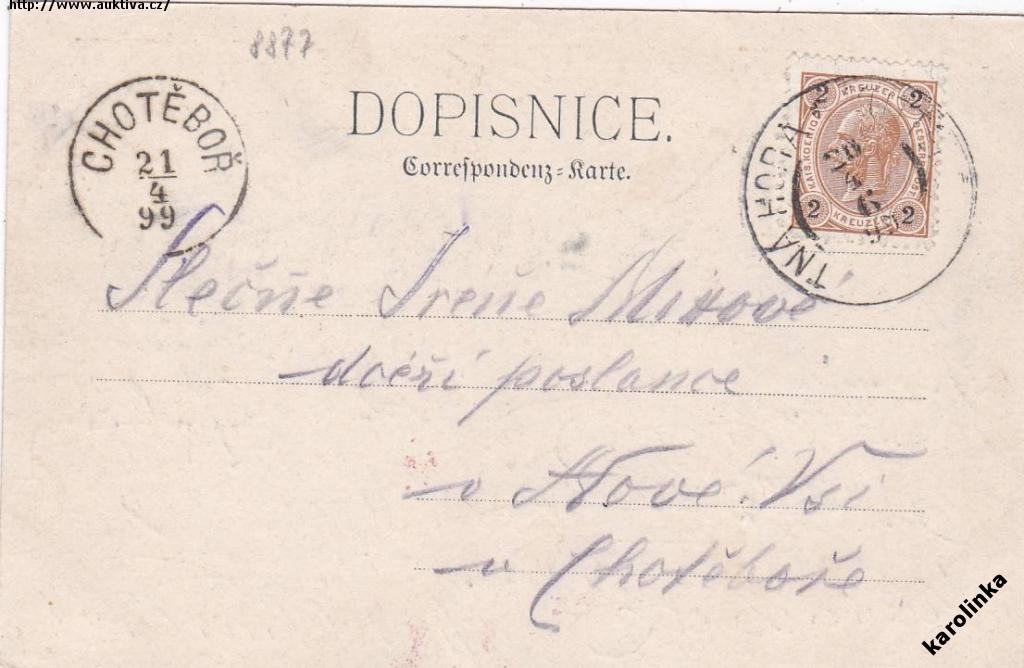 http://www.auktiva.cz/
8877
DOPISNICE.
Correspondenz-Karte.
CHOTĚBOŘ
21
4
99
TNÁ HORA
2 KREUZER 2
2 KREUZER 2
Slečně Ireně
dcéři poslance
v Nové Vsi
u Chotěboře
karolinka